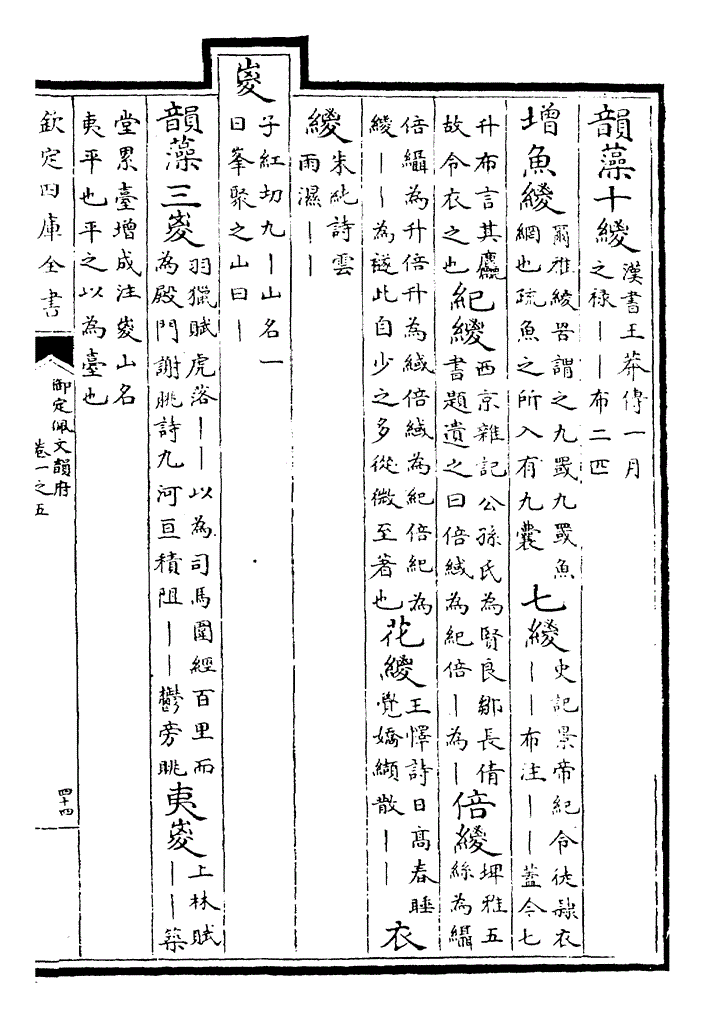 韻藻十緵漢書王莽傳一月
之禄丨丨布二匹
増魚緵爾雅緵罟謂之九罭九罭魚
網也疏魚之所入有九囊
七緵史記景帝紀令徒隸衣
丨丨布注丨丨蓋今七
升布言其麤
故令衣之也
紀緵西京雜記公孫氏為賢良鄒長倩
書題遺之曰倍緎為紀倍丨為丨
倍緵埤雅五
絲為䌰
倍䌰為升倍升為緎倍緎為紀倍紀為
緵丨丨為襚此自少之多從微至著也
花緵王惲詩日髙春睡
覺嬌纈散丨丨
衣
緵朱純詩雲
雨濕丨丨
嵏子紅切九丨山名一
曰峯聚之山曰丨
韻藻三嵏羽獵賦虎落丨丨以為司馬圍經百里而
為殿門謝朓詩九河亘積阻丨丨鬱旁眺
夷嵏上林賦
丨丨築
堂累臺增成注嵏山名
夷平也平之以為臺也
欽定四庫全書
御定佩文韻府
卷一之五
四十四